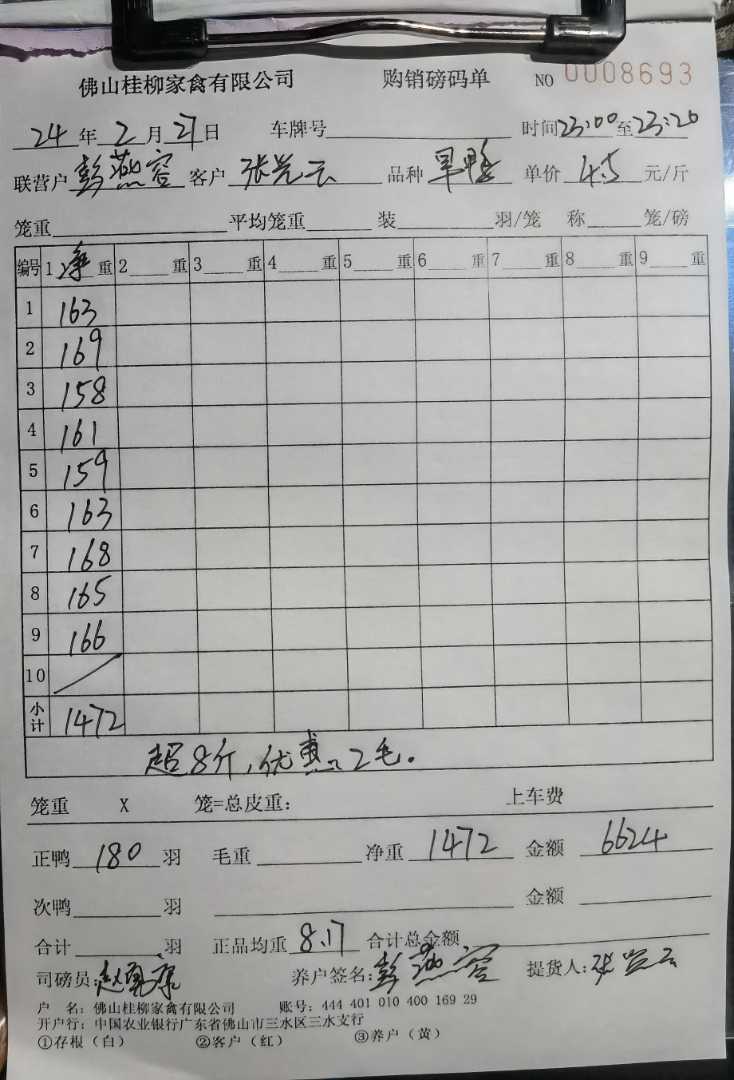 佛山桂柳家禽有限公司 购销磅码单 NO 0008693
24年2月27日 车牌号 时间23:00至23:20
联营户彭燕容 客户张兴云 品种旱鸭 单价4.5元/斤
笼重 平均笼重 装 羽/笼 称 笼/磅
编号 1净重 2 重 3 重 4 重 5 重 6 重 7 重 8 重 9 重
1 163
2 169
3 158
4 161
5 159
6 163
7 168
8 165
9 166
10
小计 1472
超8斤,优惠2毛。
笼重 X 笼=总皮重: 上车费
正鸭180羽 毛重 净重1472 金额6624
次鸭 羽 金额
合计 羽 正品均重8.17 合计总金额
司磅员: 养户签名:彭燕容 提货人:张兴云
户 名: 佛山桂柳家禽有限公司 账号: 444 401 010 400 169 29
开户行: 中国农业银行广东省佛山市三水区三水支行
①存根(白) ②客户(红) ③养户(黄)